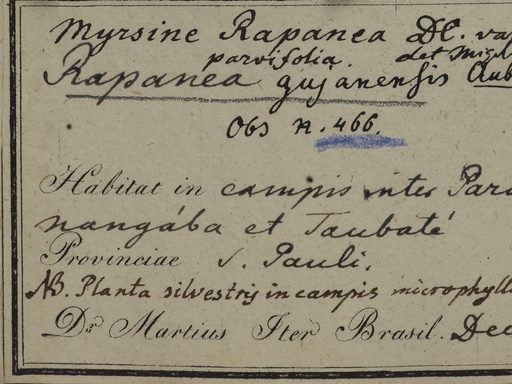 Myrsine Rapanea DC. va
parvifolia. det Miq
Rapanea gujanensis Aub
Obs n. 466.
Habitat in campis inter Para
nangába et Taubaté
Provinciae S. Pauli.
NB. Planta silvestris in campis microphyll
Dr Martius Iter Brasil. Dec